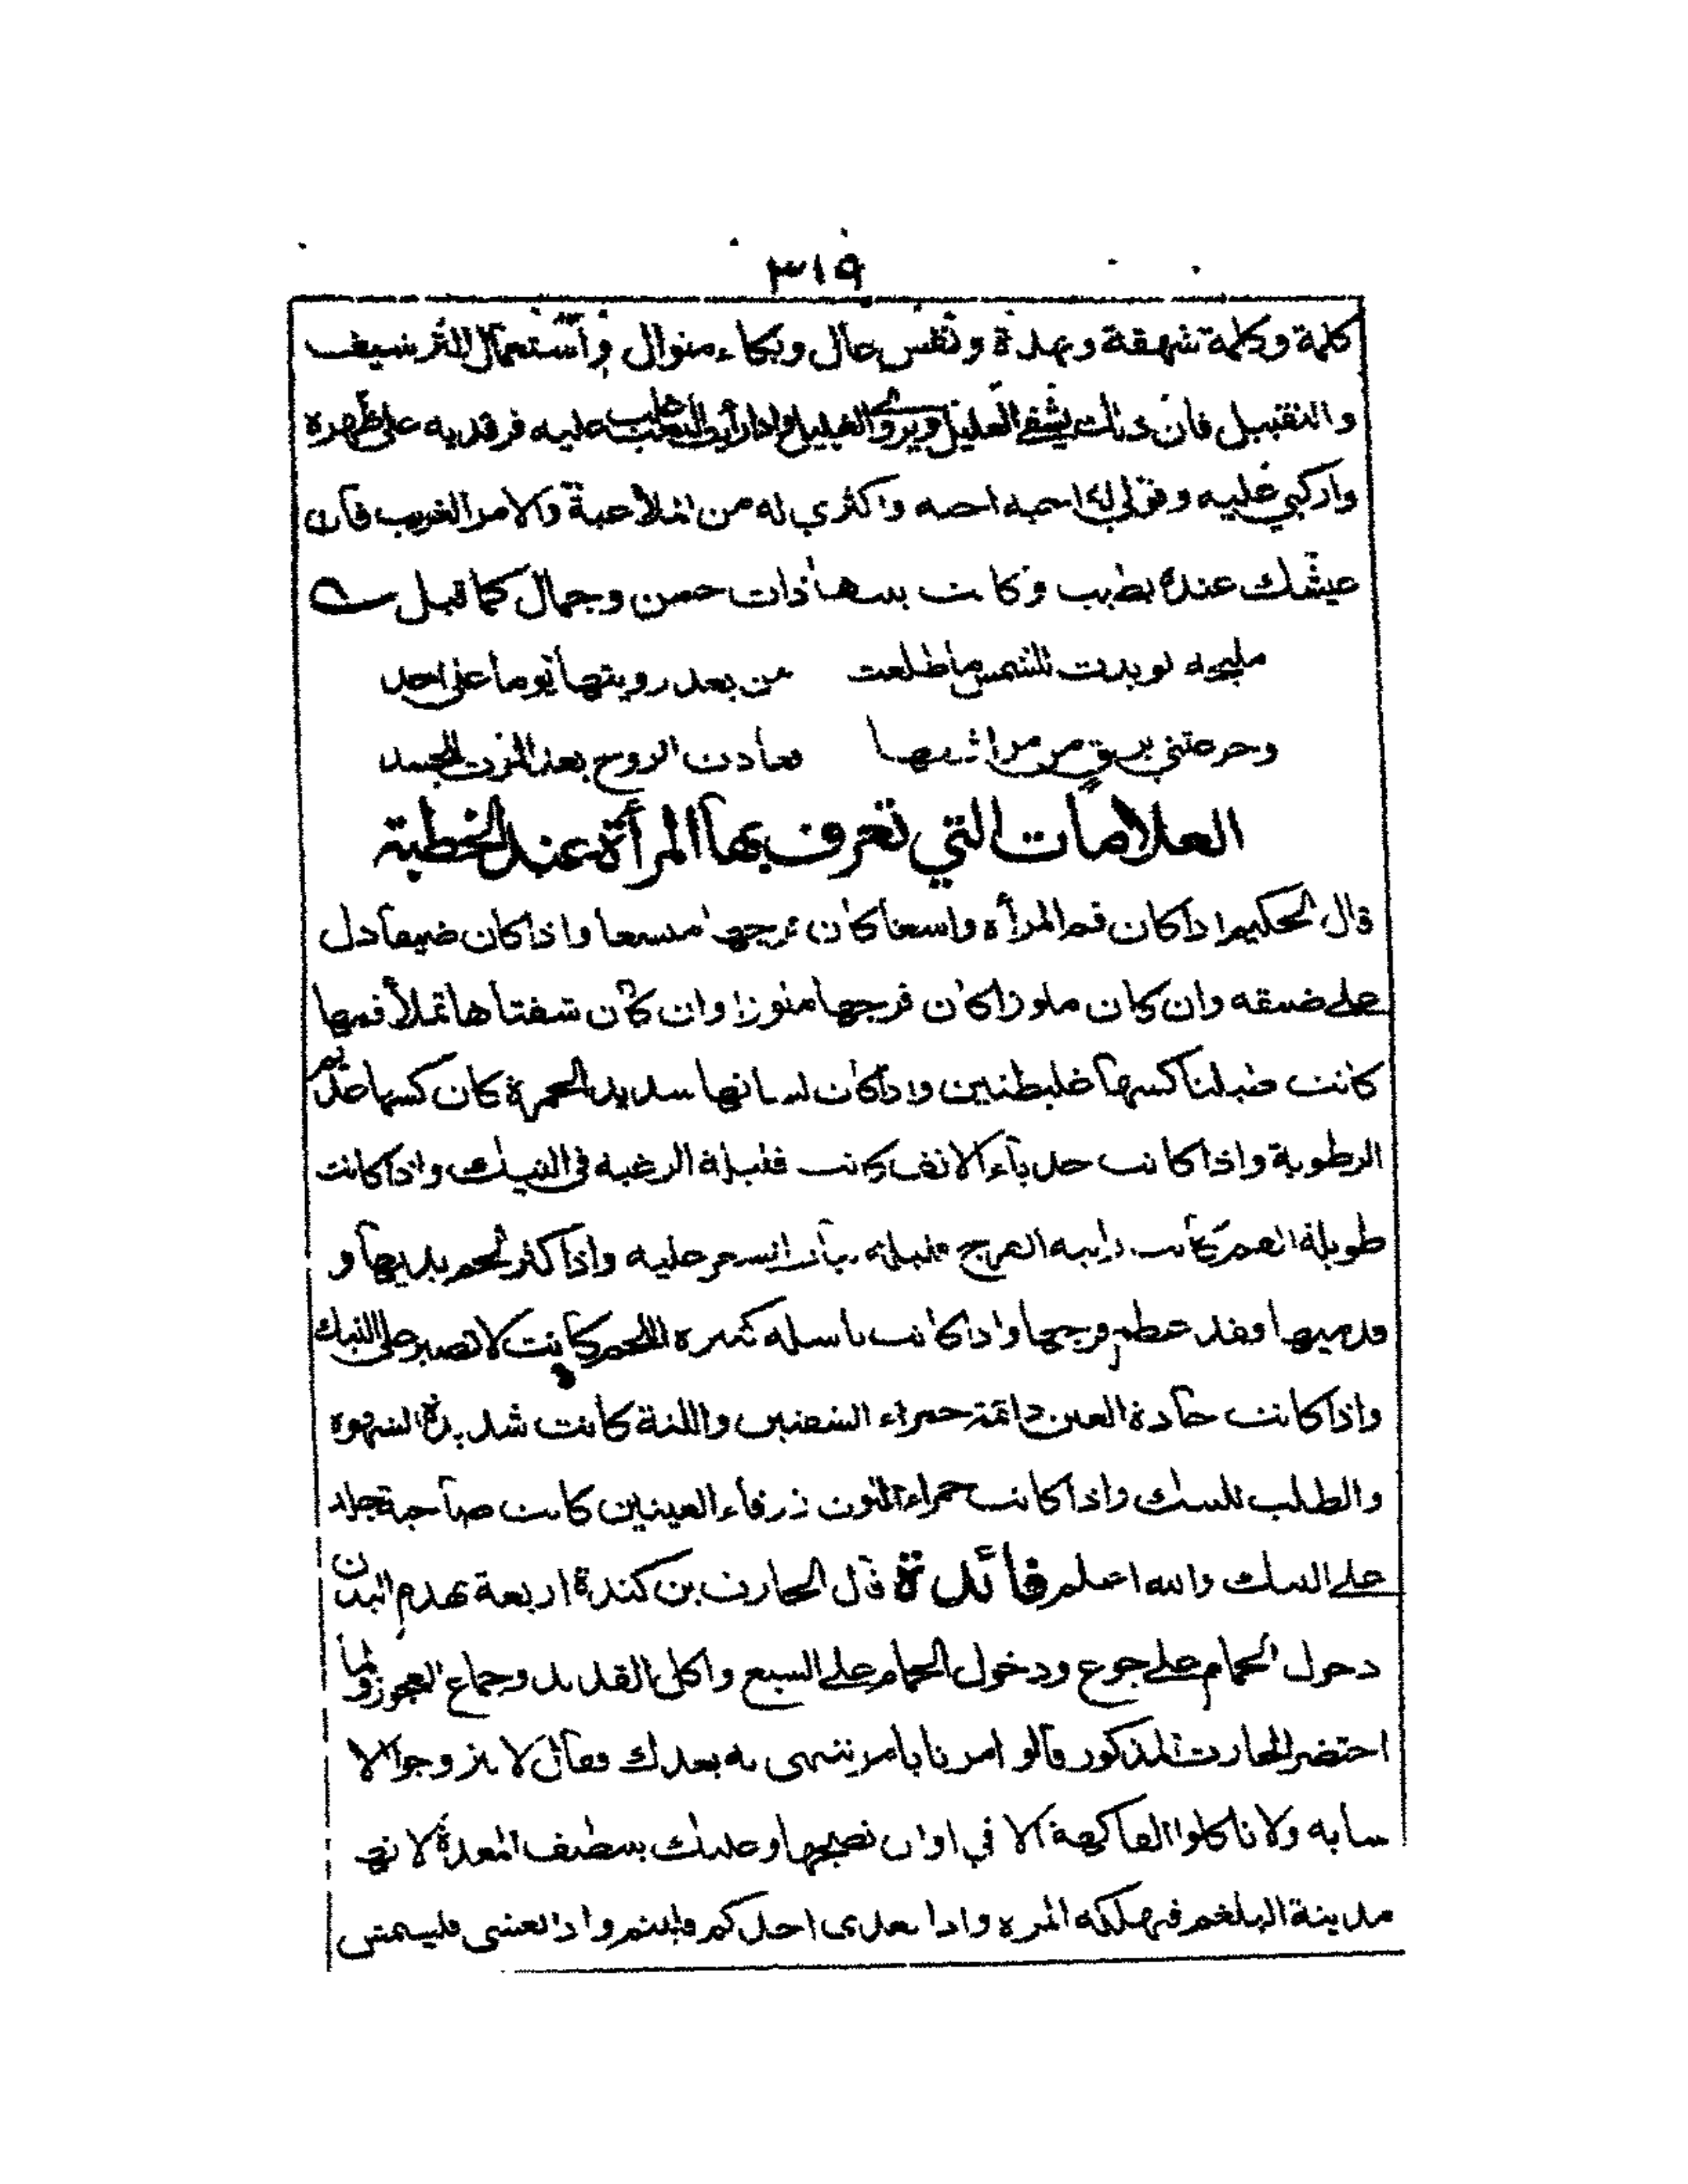 ٣١٩
كلمة وكلمة شهقة ونهدة ونفس عال وبكاء منوال وأستعمال الترشيف
والتقبيل فان ذلك يشفي العليل ويروي الغليل واذا رأيت التعب غلب عليه فرقديه على ظهره
واركبي عليه وقولي له احبه احبه واكثري له من الملاعبة والامر الغريب فان
عيشك عنده يطيب وكانت بينها ذات حسن وجمال كما قيل
مليحه لو بدت للشمس ما طلعت من بعد رويتها يوما على احد
وجرعتني بريق من مراشفها لعادت الروح بعد الموت للجسد
العلامات التي تعرف بها المرأة عند الخطبة
قال الحكيم اذا كان فم المرأة واسعا كان فرجها متسعا واذا كان ضيقا دل
على ضيقه وان كان ملوزا كان فرجها ملوزا وان كان شفتاها تملأ فمها
كانت كسها غليظتين واذا كان لسانها شديد الحمرة كان كسها عديم
الرطوبة واذا كانت حدباء الانف كانت قليلة الرغبه في النيك واذا كانت
طويلة الفم كانت رابيه الفرج قليلة نبات الشعر عليه واذا كثر لحم يديها و
قدميها فقد عظم فرجها واذا كانت كثيره اللحم كانت لا تصبر على النيك
واذا كانت حادة العين حمراء الشفتين واللثة كانت شديدة الشهوه
والطلب للنيك واذا كانت حمراء اللون زرقاء العينين كانت صاحبة تجلد
على النيك والله اعلم فائدة قال الحارث بن كندة اربعة تهدم البدن
دخول الحمام على جوع ودخول الحمام على الشبع واكل القديد وجماع العجوز ولما
احتضر الحارث المذكور قالو امرنا بامر ننتهى به بعدك فقال لا تتزوجوا الا
شابه ولا تاكلوا الفاكهة الا في اوان نضجها وعليك بتنظيف المعدة لانها
مدينة البلغم فهلكه المره واذا تغدى احدكم فلينم واذا تعشى فليتمش